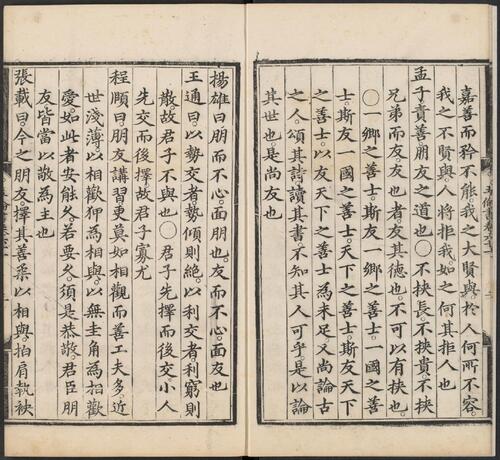 嘉善而矜不能。我之大賢與。於人何所不容。
我之不賢與。人將拒我。如之何其拒人也
孟子責善。朋友之道也〇不挾長。不挾貴。不挾
兄弟而友。友也者。友其德也。不可以有挾也。
〇一鄉之善士。斯友一鄉之善士。一國之善
士。斯友一國之善士。天下之善士。斯友天下
之善士。以友天下之善士為未足。又尚論古
之人。頌其詩。讀其書。不知其人可乎。是以論
其世也。是尚友也
揚雄曰。朋而不心。面朋也。友而不心。面友也
王通曰。以勢交者。勢傾則絕。以利交者。利窮則
散。故君子不與也〇君子先擇而後交。小人
先交而後擇。故君子寡尤
程頤曰。朋友講習。更莫如相觀而善工夫多。近
世淺薄。以相歡狎為相與。以無圭角為相歡
愛。如此者安能久。若要久。須是恭敬。君臣朋
友。皆當以敬為主也
張載曰。今之朋友。擇其善柔以相與。拍肩執袂